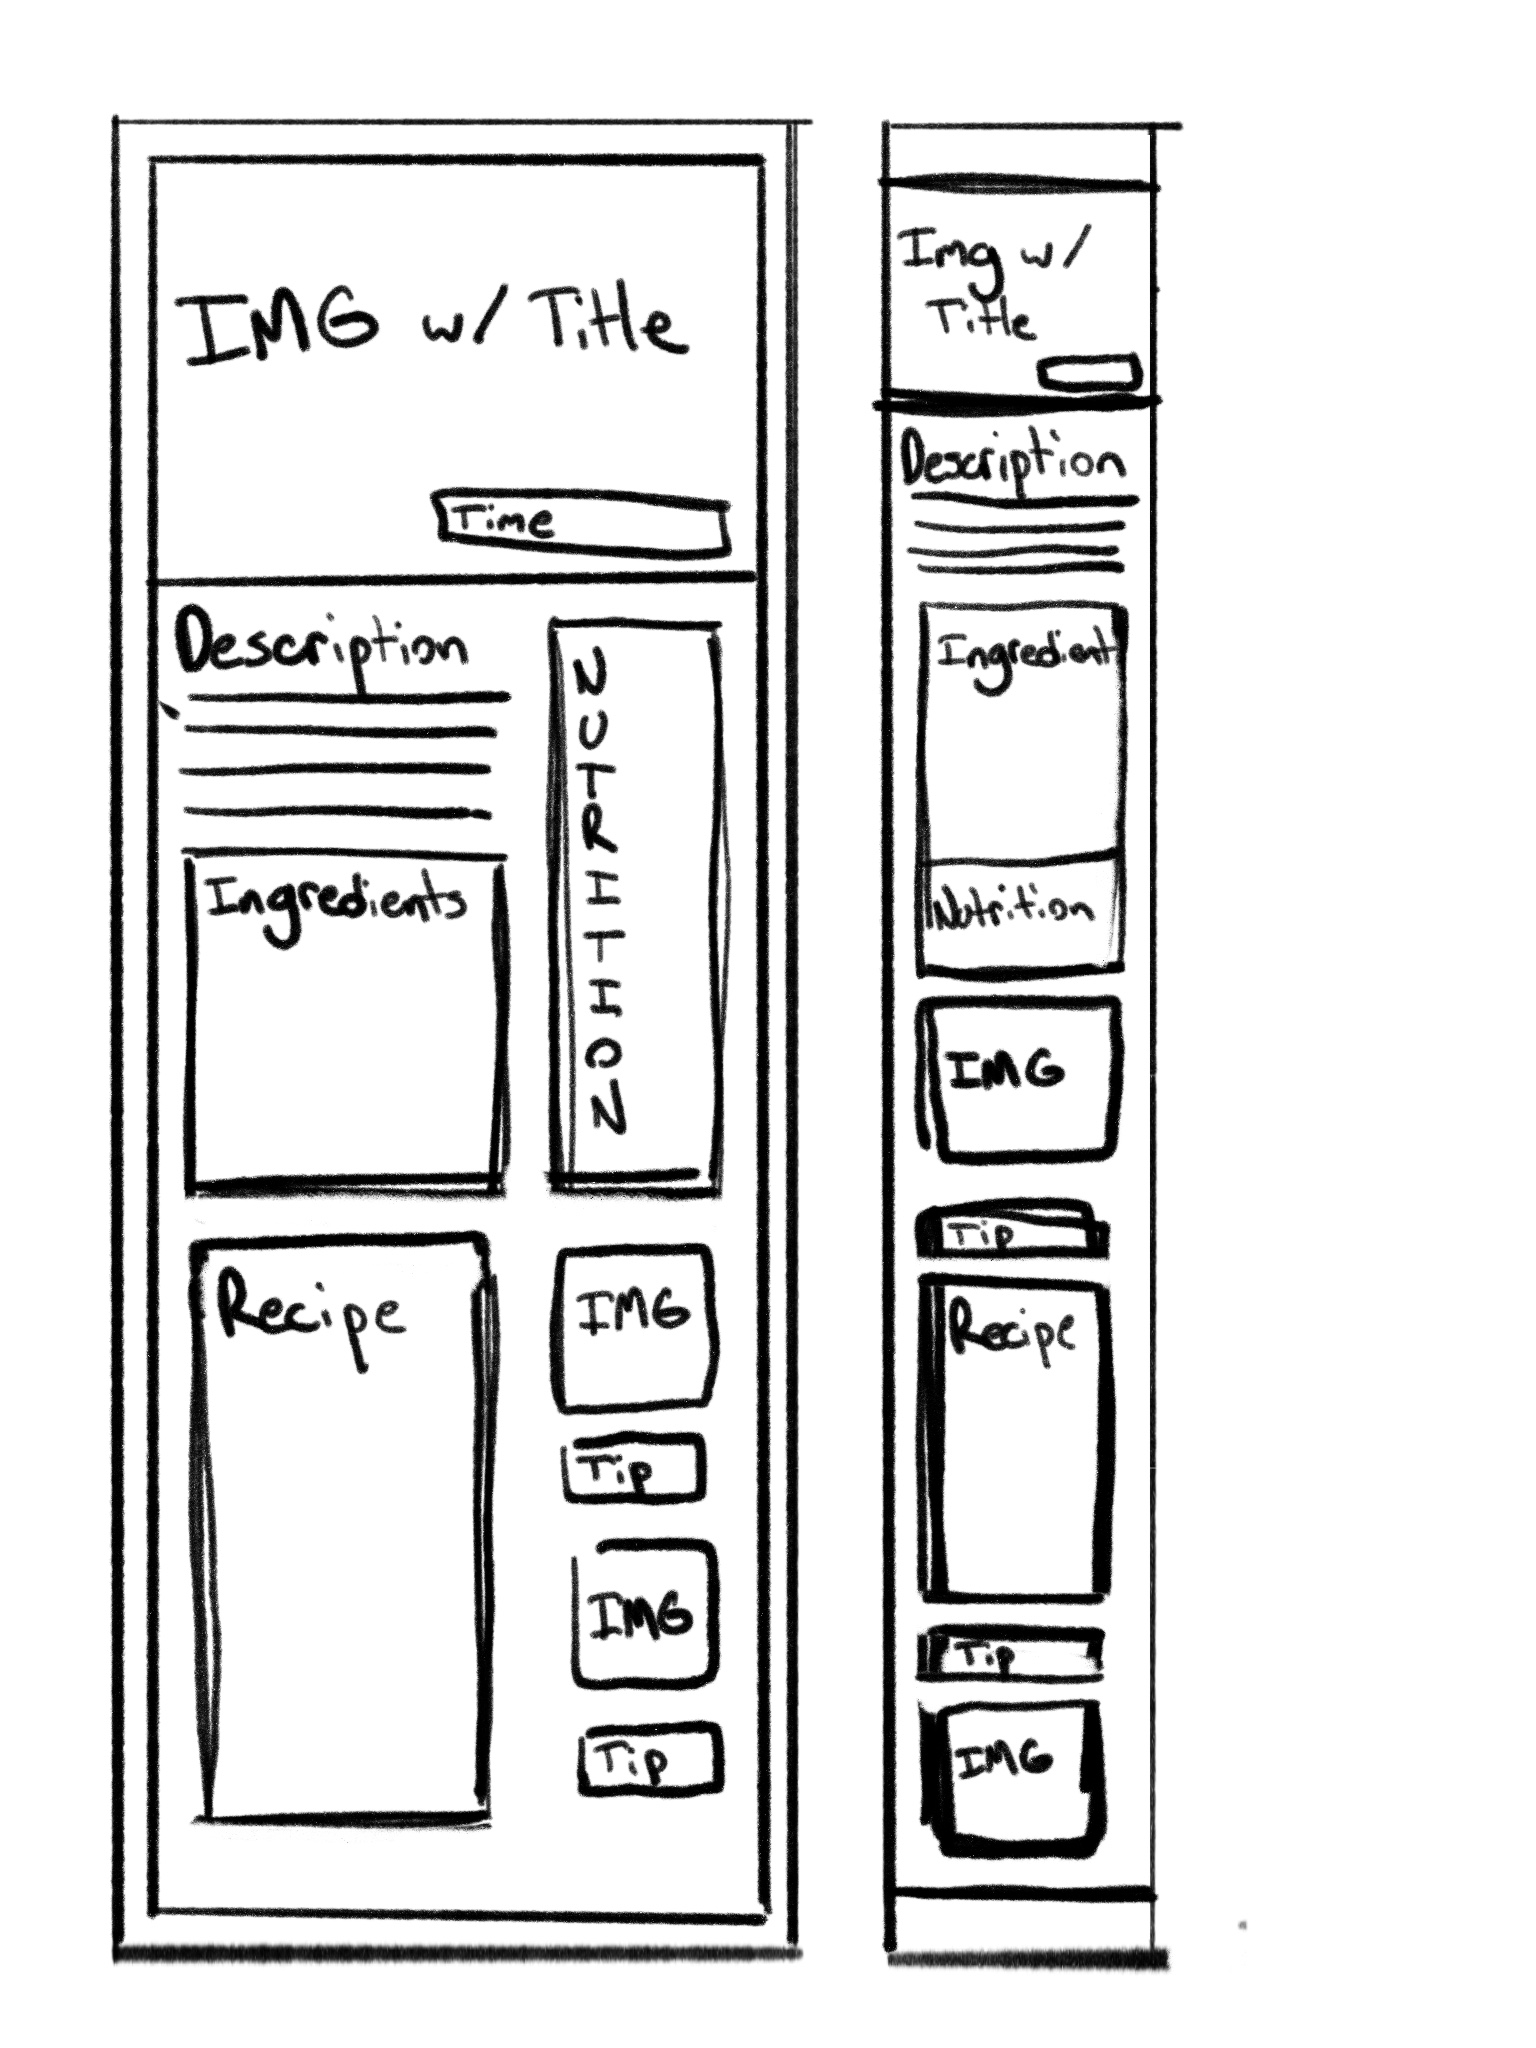 IMG w/ Title
Time
Description
Ingredients
NUTRITION
Recipe
IMG
Tip
IMG
Tip
Img w/
Title
Description
Ingredient
Nutrition
IMG
Tip
Recipe
Tip
IMG